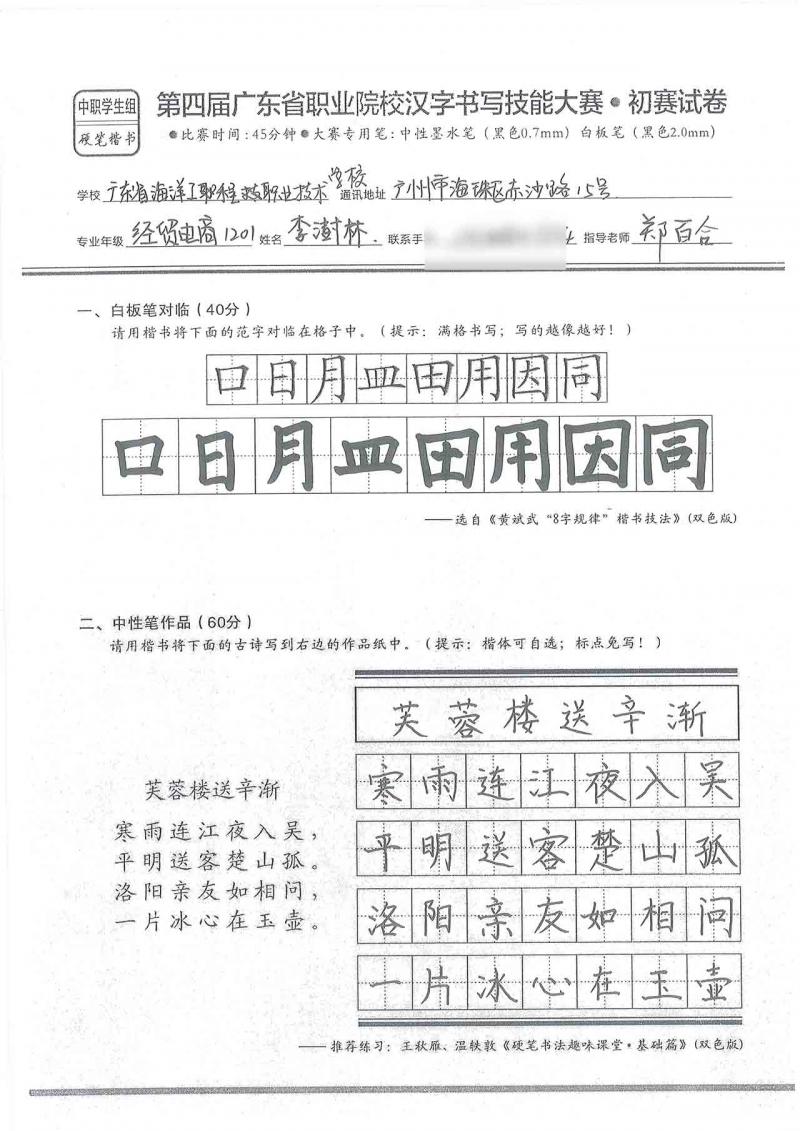 中职学生组
硬笔楷书
第四届广东省职业院校汉字书写技能大赛•初赛试卷
●比赛时间:45分钟●大赛专用笔:中性墨水笔(黑色0.7mm)白板笔(黑色2.0mm)
学校 广东省海洋工程职业技术学校 通讯地址 广州市海珠区赤沙路15号
专业年级 经贸电商1201 姓名 李澍林 联系手 指导老师 郑百合
一、白板笔对临(40分)
请用楷书将下面的范字对临在格子中。(提示:满格书写;写的越像越好!)
口日月皿田用因同
口日月皿田用因同
——选自《黄斌武“8字规律”楷书技法》(双色版)
二、中性笔作品(60分)
请用楷书将下面的古诗写到右边的作品纸中。(提示:楷体可自选;标点免写!)
芙蓉楼送辛渐
寒雨连江夜入吴,
平明送客楚山孤。
洛阳亲友如相问,
一片冰心在玉壶。
芙蓉楼送辛渐
寒雨连江夜入吴
平明送客楚山孤
洛阳亲友如相问
一片冰心在玉壶
——推荐练习:王秋雁、温轶敦《硬笔书法趣味课堂·基础篇》(双色版)